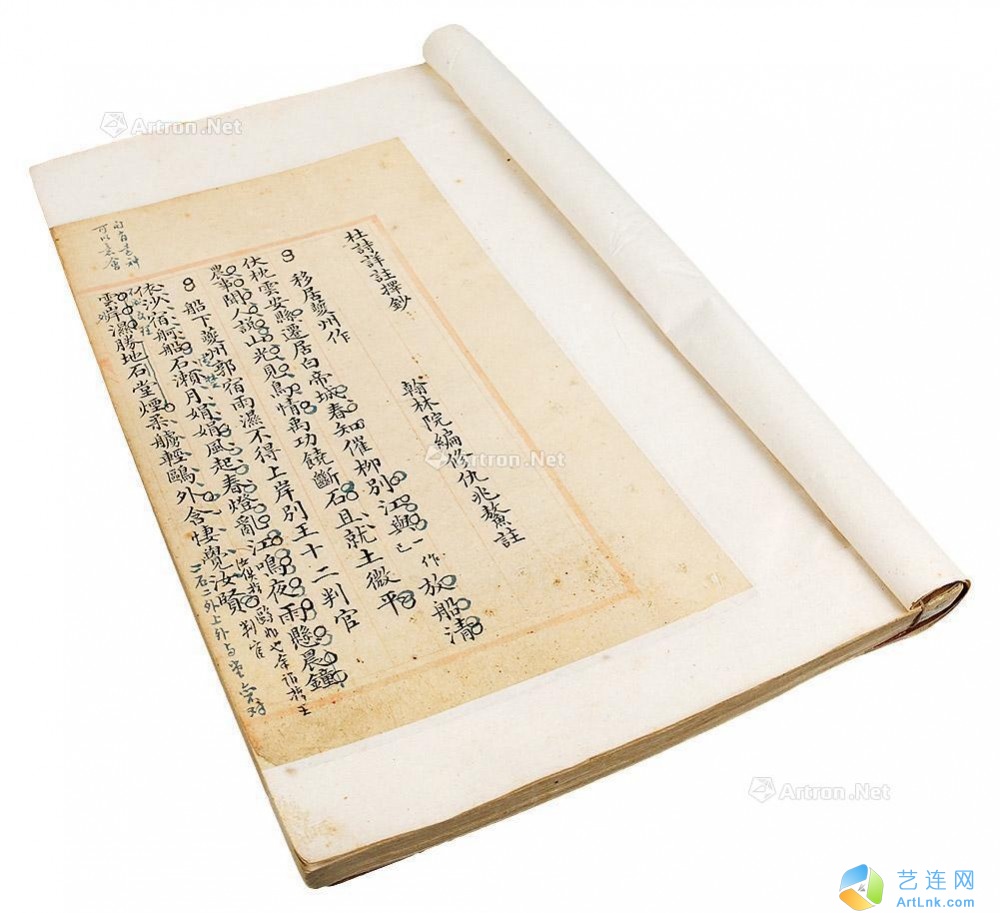 杜詩詳註撰鈔
翰林院編修仇兆鰲註
移居夔州作
伏枕雲安縣遷居白帝城春知催柳別江與已一作放船清
農事聞人說山光見鳥情禹功饒斷石且就土微平
船下夔州郭宿雨濕不得上岸別王十二判官
依沙宿舸船石瀨月娟娟風起春燈亂江鳴夜雨懸晨鐘
雲岸濕勝地石堂煙柔艣輕鷗外含悽覺汝賢
判官
可以意會
Artron.Net
Artron.Net
Artron.Net
艺连网
ArtLnk.com